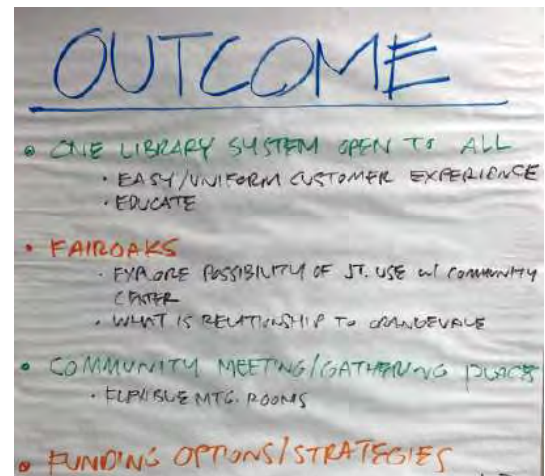 OUTCOME
• ONE LIBRARY SYSTEM OPEN TO ALL
• EASY/UNIFORM CUSTOMER EXPERIENCE
• EDUCATE
• FAIROAKS
• EXPLORE POSSIBILITY OF JT. USE w/ COMMUNITY
CENTER
• WHAT IS RELATIONSHIP TO ORANGEVALE
• COMMUNITY MEETING/GATHERING PLACE
• FLEXIBLE MTG. ROOMS
• FUNDING OPTIONS/STRATEGIES